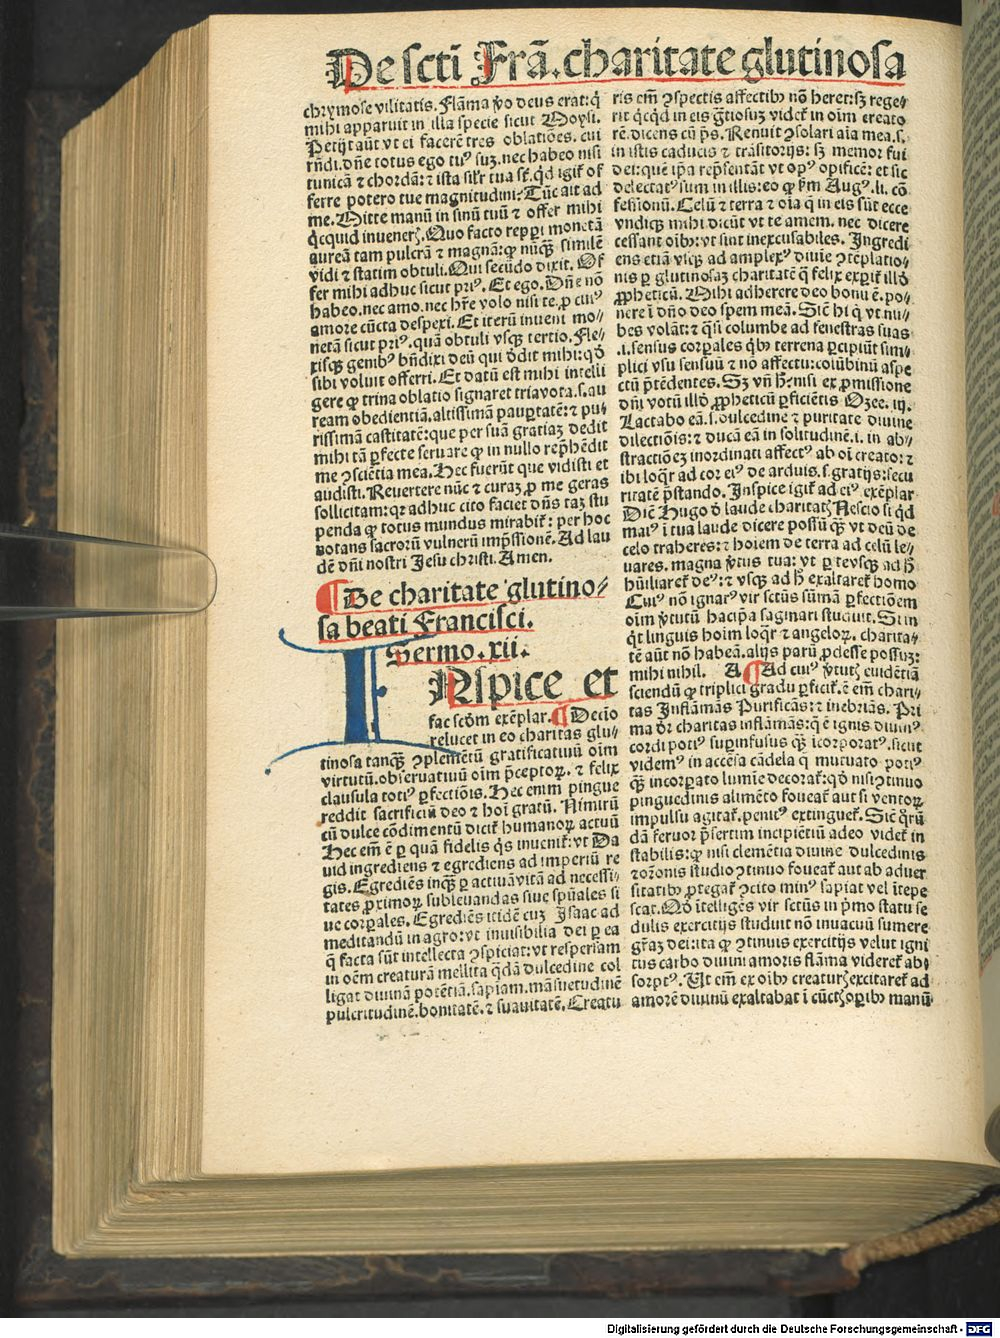 De scti Frā. charitate glutinosa
chrymose vilitatis. Flāma ꝟo deus erat: q̄
mihi apparuit in illa specie sicut Moysi.
Petijt aūt vt ei facerē tres oblatiōes. cui
rn̄di. dn̄e totus ego tuꝰ suȝ. nec habeo nisi
tunicā ⁊ chordā: ⁊ ista sil'r tua sūt. qd igit̄ of
ferre potero tue magnitudini? Tūc ait ad
me. Mitte manū in sinū tuū ⁊ offer mihi
q̇cquid inueneris. Quo facto repperi monetā
aureā tam pulcrā ⁊ magnā: ꝙ nūqȝ similē
vidi ⁊ statim obtuli. Qui secūdo dixit. Of
fer mihi adhuc sicut priꝰ. Et ego. Dn̄e nō
habeo. nec amo. nec hr̄e volo nisi te. ꝓ cuiꝰ
amore cūcta despexi. Et iterū inueni mo-
netā sicut priꝰ. quā obtuli vsqȝ tertio. Fle-
xisqȝ genibꝰ bn̄dixi deū qui dedit mihi: qd̄
sibi voluit offerri. Et datū est mihi intelli
gere ꝙ trina oblatio signaret tria vota. s. au
ream obedientiā. altissimā paup̄tatē: ⁊ pu-
rissimā castitatē: que per suā gratiaȝ dedit
mihi tā ꝑfecte seruare ꝙ in nullo rep̄hēdit
me ɔsciētia mea. Hec fuerūt que vidisti et
audisti. Reuertere nūc ⁊ curaȝ ꝓ me geras
sollicitam: qꝛ adhuc cito faciet dn̄s taȝ stu
penda ꝙ totus mundus mirabit̄: per hoc
notans sacrorū vulnerū imp̄ssionē. Ad lau
dē dn̄i nostri Jesu christi. Amen.
¶ De charitate glutino-
sa beati Francisci.
Sermo. xii.
INspice et
fac scd̄m exēplar. ¶ Decio
relucet in eo charitas glu-
tinosa tanqȝ ɔplemētū gratificatiuū oīm
virtutū. obseruatiuū oīm p̄ceptoꝝ. ⁊ felix
clausula totiꝰ ꝑfectiōis. Hec enim pingue
reddit sacrificiū deo ⁊ hoī gratū. Nimirū
cū dulce cōdimentū dicit̄ humanoꝝ actuū
Hec em̄ ē ꝑ quā fidelis q̇s inuenit̄: vt Da
uid ingrediens ⁊ egrediens ad imperiū re
gis. Egrediēs inqȝ ꝑ actiuā vitā ad necessi-
tates ꝓximoꝝ subleuandas siue spūales si
ue corꝑales. Egrediēs itidē cuȝ Isaac ad
meditandū in agro: vt inuisibilia dei ꝑ ea
q̄ facta sūt intellecta ɔspiciat: vt respersam
in oēm creaturā mellita q̄dā dulcedine col
ligat diuinā potētiā. sapiam. māsuetudinē
pulcritudinē. bonitatē. ⁊ suauitatē. Creatu
ris em̄ ɔspectis affectibꝰ nō heret: sȝ rege-
rit q̇cqd in eis gr̄tiosuȝ videt̄ in oīm creato
rē. dicens cū ps. Renuit ɔsolari aīa mea. s.
in istis caducis ⁊ trāsitorijs: sȝ memor fui
dei: que ipā rep̄sentāt vt opꝰ opificē: et sic
delectatꝰ sum in illis: eo ꝙ fm Augꝰ. li. cō
fessionū. Celū ⁊ terra ⁊ oīa q̄ in eis sūt ecce
vndiqȝ mihi dicūt vt te amem. nec dicere
cessant oībꝰ: vt sint inexcusabiles. Ingredi
ens etiā vsqȝ ad amplexꝰ diuīe ɔtēplatio-
nis ꝑ glutinosaȝ charitatē q̄ felix exꝑit̄ illd̄
ꝓpheticū. Mihi adherere deo bonū ē. po-
nere ī dn̄o deo spem meā. Sic̄ hi q̄ vt nu-
bes volāt: ⁊ q̄si columbe ad fenestras suas
.i. sensus corꝑales q̇bꝰ terrena ꝑcipiūt sim-
plici vsu sensuū ⁊ nō affectu: colūbinū aspe
ctū p̄tēdentes. Sȝ vn̄ h̄? nisi ex ꝓmissione
dn̄i votū illd̄ ꝓpheticū ꝑficiētis Ozee. ij.
Lactabo eā. s. dulcedine ⁊ puritate diuine
dilectiōis: ⁊ ducā eā in solitudinē. i. in ab-
stractiōeȝ inordinati affectꝰ ab oī creato: ⁊
ibi loq̄r ad cor eiꝰ de arduis. s. gratijs: secu
ritatē p̄stando. Inspice igit̄ ad eiꝰ exēplar
Dic̄ Hugo d̄ laude charitatꝭ Nescio si q̇d
maiꝰ ī tua laude dicere possū qȝ vt deū de
celo traheres: ⁊ hoīem de terra ad celū le-
uares. magna ꝟtus tua: vt ꝑ te vsqȝ ad h̄
hūiliaret̄ deꝰ: ⁊ vsqȝ ad h̄ exaltaret̄ homo
Cuiꝰ nō ignarꝰ vir sctūs sūmā ꝑfectiōem
oīm ꝟtutū hac ip̄a saginari studuit. Si in
q̇t linguis hoīm loq̄r ⁊ angeloꝝ. charita-
tē aūt nō habeā. alijs parū ꝓdesse possuȝ:
mihi nihil. A ¶ Ad cuiꝰ ꝟtutꝭ euidētiā
sciendū ꝙ triplici gradu ꝑficit̄. ē em̄ chari-
tas Inflāmās Purificās: ⁊ inebriās. Pri
ma dr̄ charitas inflāmās: q̄ ē ignis diuinꝰ
cordi potiꝰ suꝑinfusus qȝ īcorporatꝰ. sicut
videmꝰ in accēsa cādela q̄ mutuato potiꝰ
qȝ incorꝑato lumīe decorat̄: qd̄ nisi ɔtinuo
pinguedinis alimēto foueat̄ aut si ventoꝝ
impulsu agitat̄. penitꝰ extinguet̄. Sic̄ q̄rū
dā feruor p̄sertim incipiētiū adeo videt̄ in
stabilis: ꝙ nisi clemētia diuine dulcedinis
⁊ or̄onis studio ɔtinuo foueat̄ aut ab aduer
sitatibꝰ ꝓtegat̄ ɔcito minꝰ sapiat vel ītepe
scat. Qd̄ ītelligēs vir sctūs in p̄mo statu se
dulis exercitijs studuit nō inuacuū sumere
gr̄aȝ dei: ita ꝙ ɔtinuis exercitijs velut igni
tus carbo diuini amoris flāma videret̄ ab
sorptꝰ. Ut em̄ ex oībꝰ creaturꝭ excitaret̄ ad
amorē diuinū exaltabat ī cūctꝭ oꝑibꝰ manū
Digitalisierung gefördert durch die Deutsche Forschungsgemeinschaft - DFG